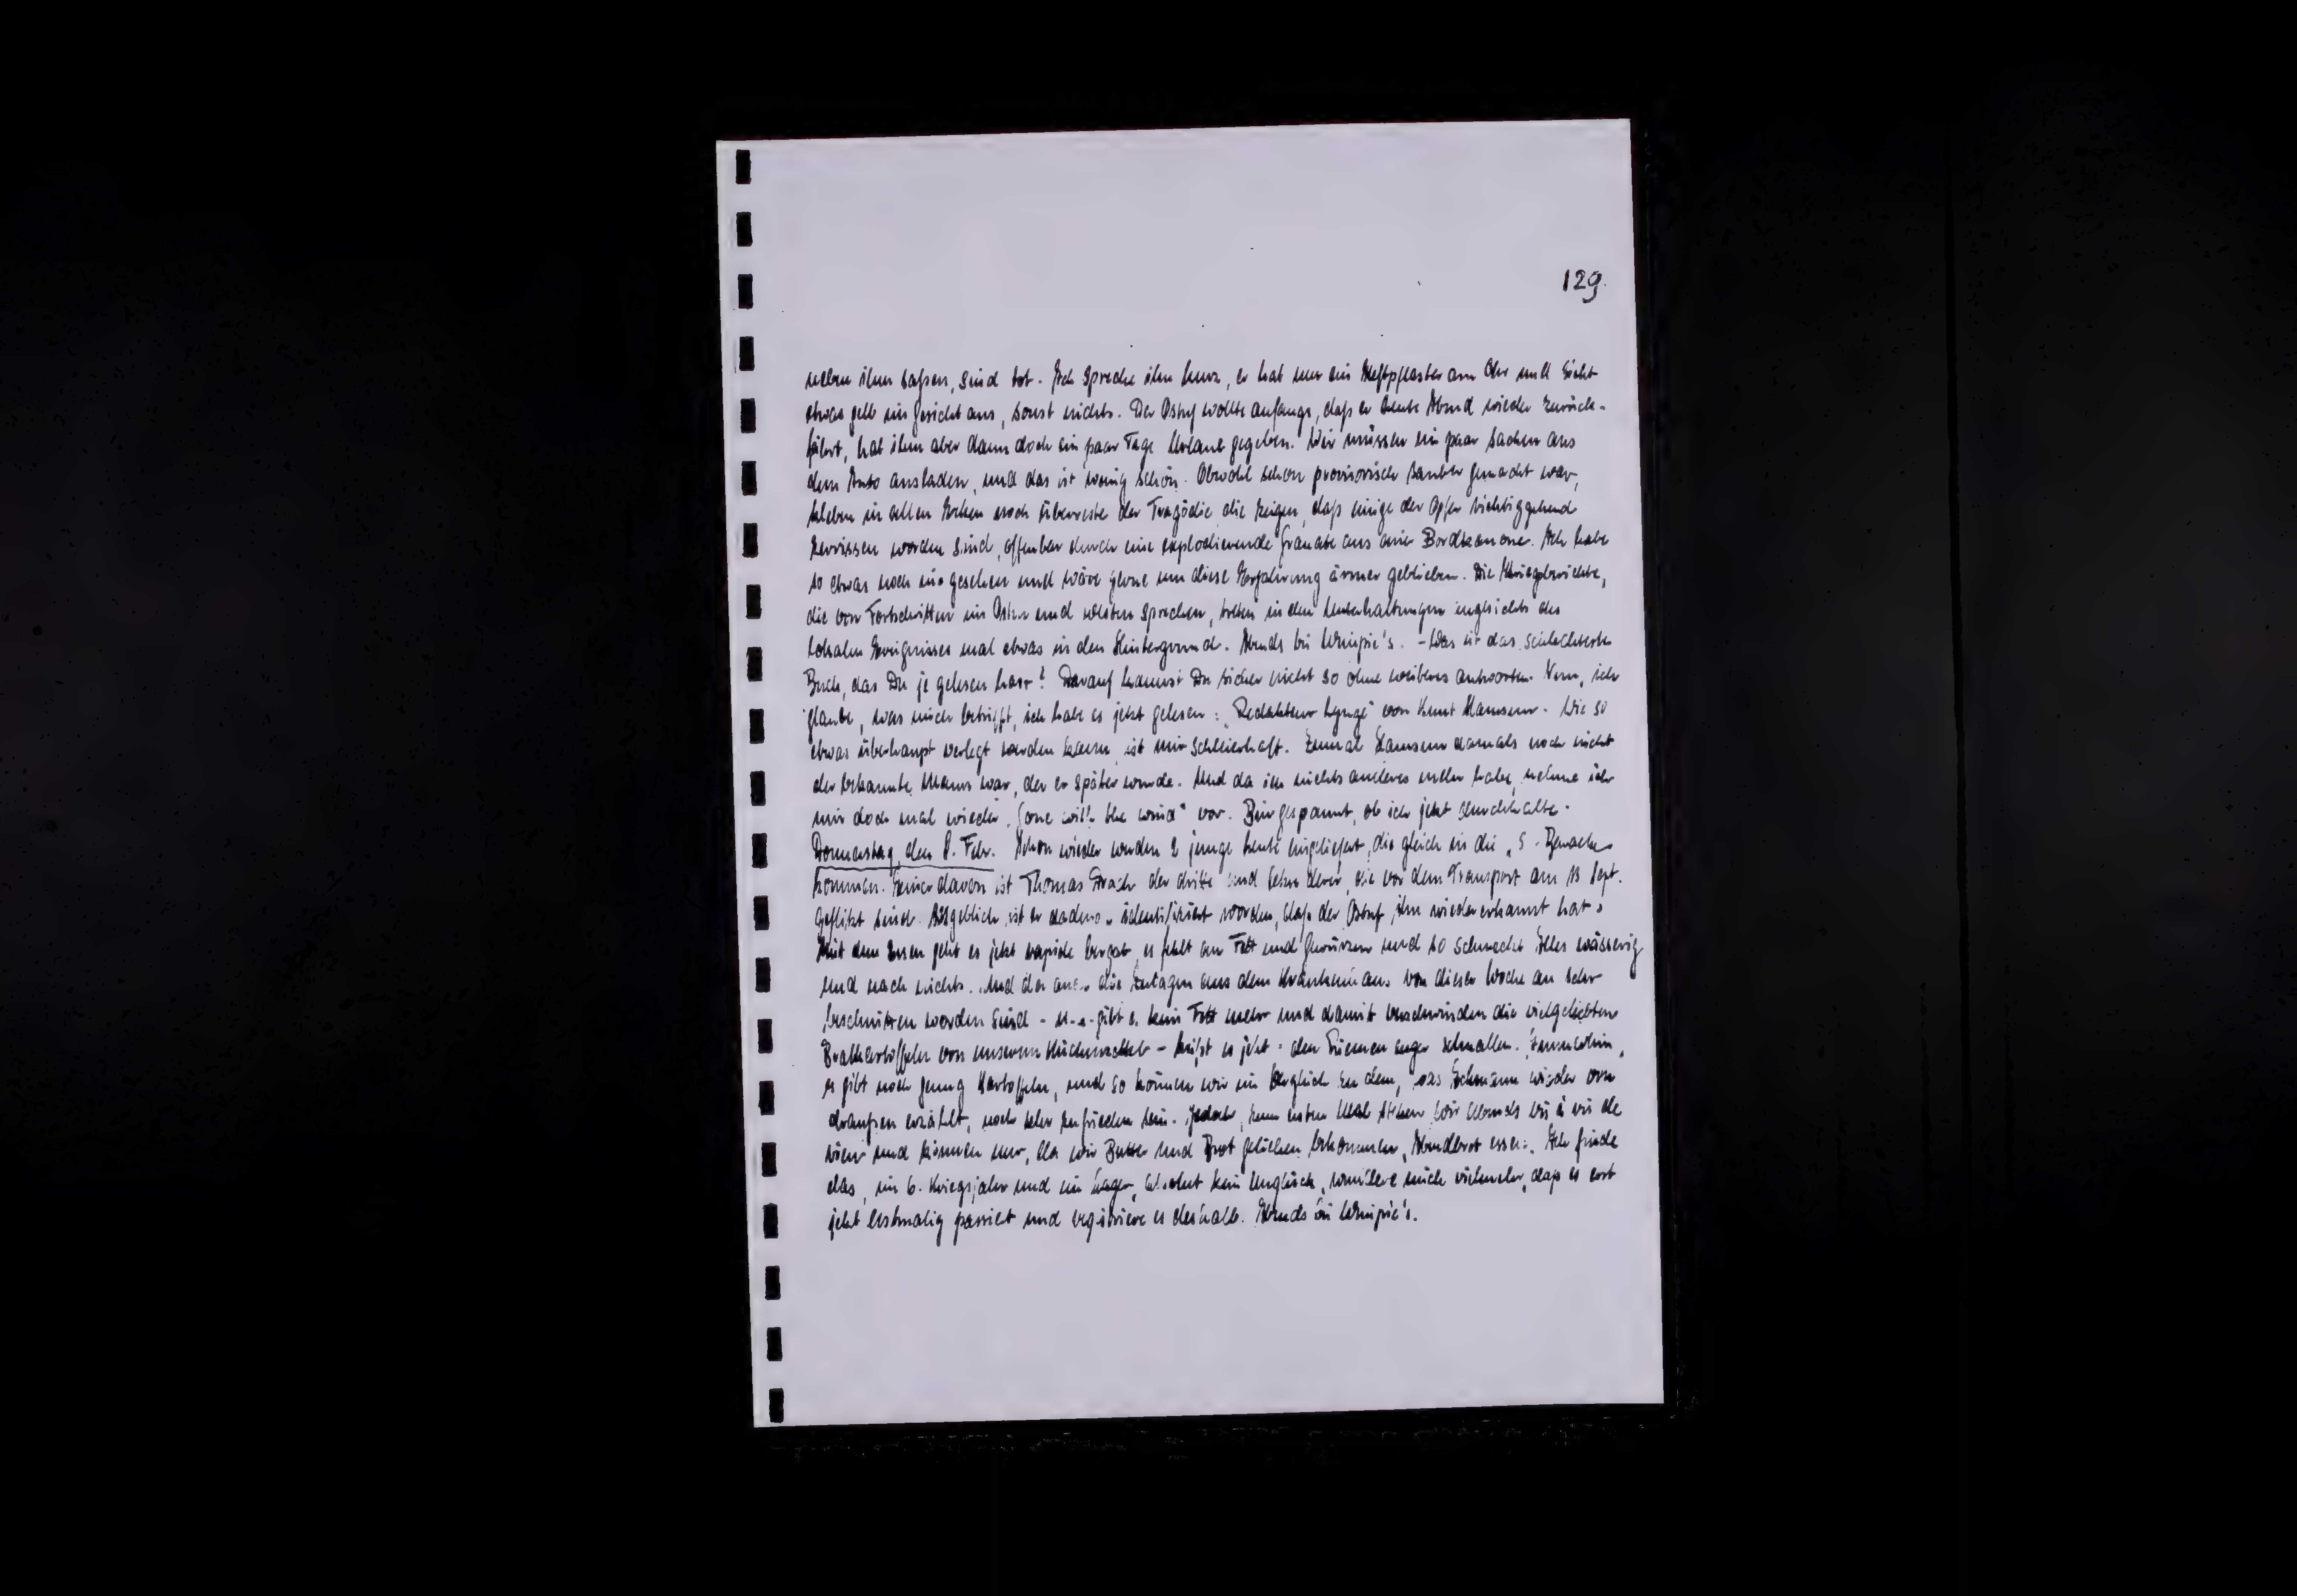 129.
neben ihm saßen, sind tot. Ich spreche ihn kurz, er hat nur ein Heftpflaster am Ohr und sieht
etwas gelb im Gesicht aus, sonst nichts. Der Ostuf wollte anfangs, daß er heute Abend wieder zurück-
fährt, hat ihm aber dann doch ein paar Tage Urlaub gegeben. Wir müssen ein paar Sachen aus
dem Auto ausladen, und das ist wenig schön. Obwohl schon provisorisch sauber gemacht war,
kleben in allen Ecken noch Überreste der Tragödie die zeigen, daß einige der Opfer richtiggehend
zerrissen worden sind, offenbar durch eine explodierende Granate aus einer Bordkanone. Ich habe
so etwas noch nie gesehen und wäre gerne um diese Erfahrung ärmer geblieben. Die Kriegsberichte,
die von Fortschritten im Osten und Westen sprechen, treten in den Unterhaltungen angesichts des
lokalen Ereignisses mal etwas in den Hintergrund. Abends bei Wimpie's. - Was ist das schlechteste
Buch, das Du je gelesen hast? Darauf kannst Du sicher nicht so ohne weiteres antworten. Nun, ich
glaube, was mich betrifft, ich habe es jetzt gelesen: "Redakteur Lynge" von Knut Hamsun. Wie so
etwas überhaupt verlegt werden kann, ist mir schleierhaft. Zumal Hamsun damals noch nicht
der bekannte Mann war, der er später wurde. Und da ich nichts anderes mehr habe, nehme ich
mir doch mal wieder "Gone with the wind" vor. Bin gespannt, ob ich jetzt durchhalte.
Donnerstag, den 8. Febr. Schon wieder werden 2 junge Leute eingeliefert, die gleich in die "S"-Baracke
kommen. Einer davon ist Thomas der dritte und derer, die vor dem Transport am 13 Sept.
geflitzt sind. Angeblich ist er dadurch identifiziert worden, daß der Ostuf ihn wiedererkannt hat.
Mit dem Essen geht es jetzt rapide bergab, es fehlt an Fett und Gewürzen und so schmeckt Alles wässerig
und nach nichts. Und da auch die Zulagen aus dem Krankenhaus von dieser Woche an sehr
beschnitten worden sind - u.a. gibt es kein Fett mehr und damit verschwinden die vielgeliebten
Bratkartoffeln von unserem Küchenzettel - heißt es jetzt: den Riemen enger schnallen. Immerhin,
es gibt noch genug Kartoffeln, und so können wir im Vergleich zu dem, was wieder von
draußen erzählt, noch sehr zufrieden sein. Jedoch, zum ersten Mal stehen wir Abends vis à vis de
rien und können nur, da wir Butter und Brot geliehen bekommen, Abendbrot essen. Ich finde
das, im 6. Kriegsjahr und im Lager, absolut kein Unglück, wundere mich vielmehr, daß es erst
jetzt erstmalig passiert und registriere es deshalb. Abends bei Wimpie's.